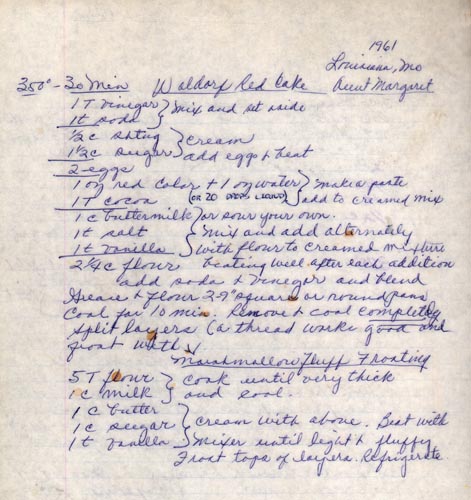 1961
Louisiana, Mo
350° - 30 Min Waldorf Red Cake Aunt Margaret
1 T vinegar } mix and set aside
1 t soda
1/2 c shtng } cream
1 1/2 c sugar } add eggs & beat
2 eggs
1 oz red color + 1 oz water } make a paste
1 T cocoa (OR 20 DROPS LIQUID) } add to creamed mix
1 c buttermilk / or sour your own.
1 t salt } Mix and add alternately
1 t vanilla } with flour to creamed mixture
2 1/4 c flour beating well after each addition
add soda & vinegar and blend
Grease & flour 2-9" square or round pans
Cool for 10 min. Remove & cool completely
Split layers (a thread works good and
frost with
Marshmallow Fluff Frosting
5 T flour } cook until very thick
1 c milk } and cool.
1 c butter
1 c sugar } cream with above. Beat with
1 t vanilla } mixer until light & fluffy
Frost tops of layers. Refrigerate